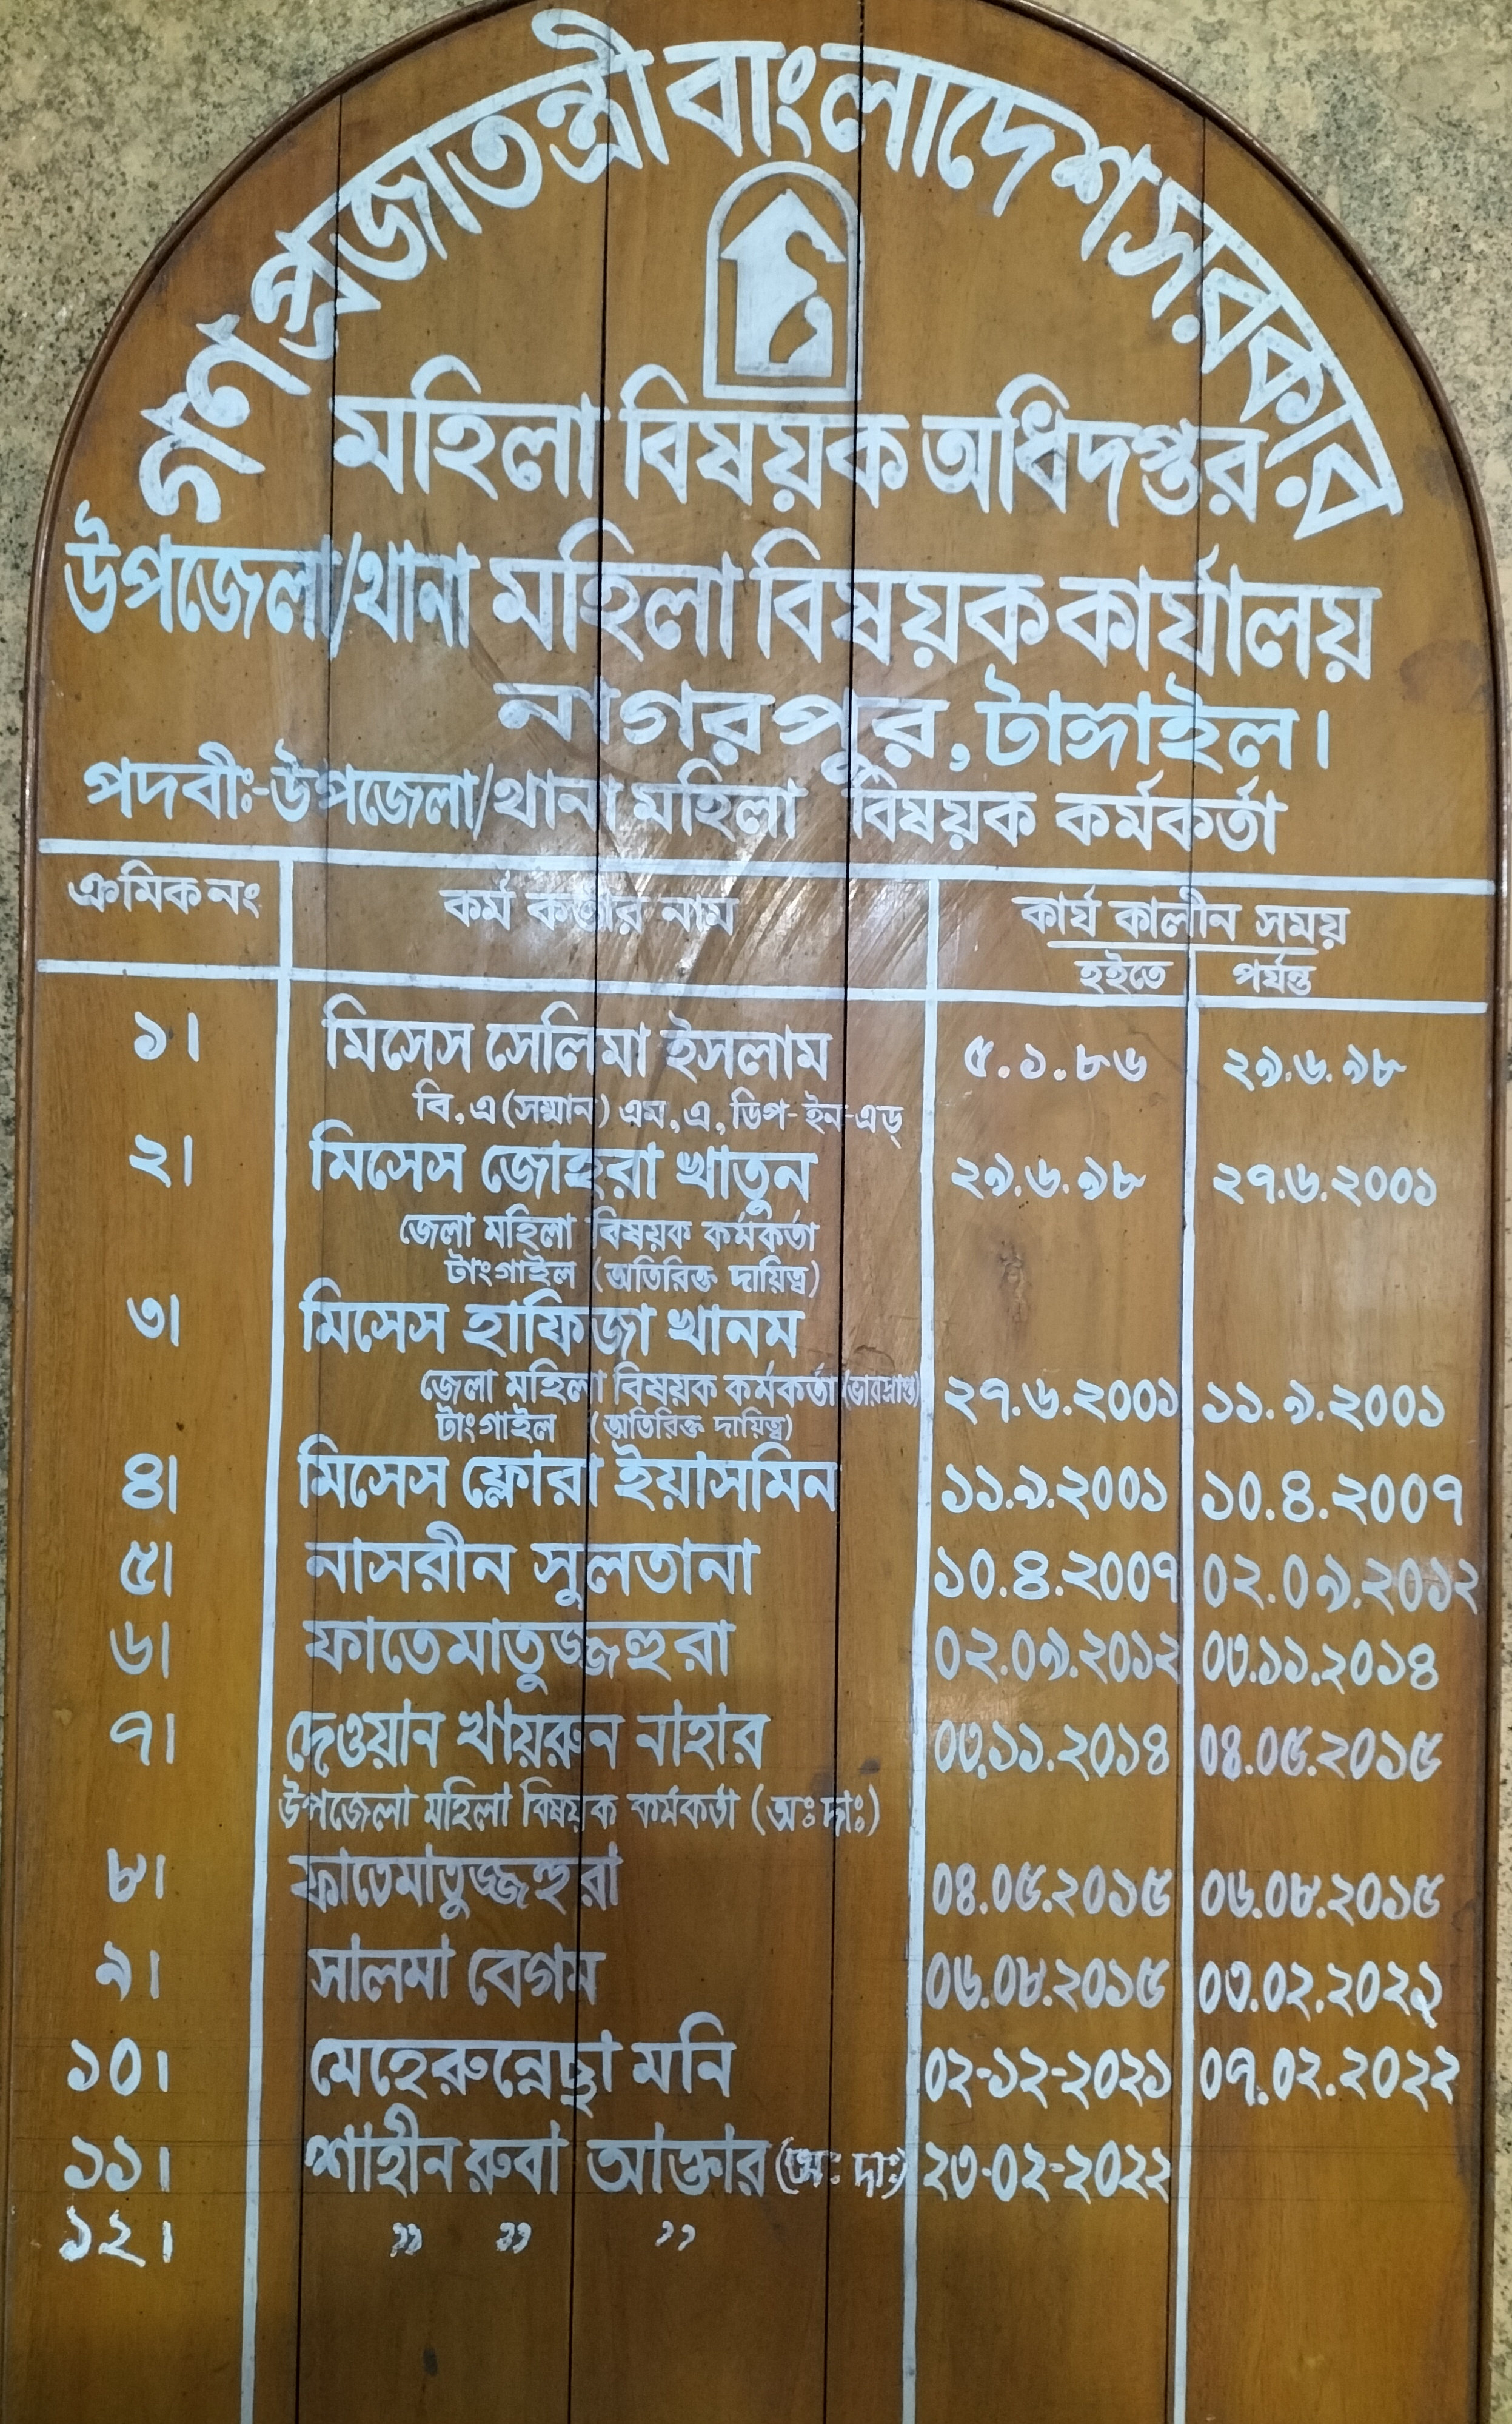 গণপ্রজাতন্ত্রী বাংলাদেশ সরকার
মহিলা বিষয়ক অধিদপ্তর
উপজেলা/থানা মহিলা বিষয়ক কার্যালয়
নাগরপুর, টাঙ্গাইল।
পদবীঃ-উপজেলা/থানা মহিলা বিষয়ক কর্মকর্তা
ক্রমিক নং কর্ম কর্তার নাম কার্য কালীন সময়
হইতে পর্যন্ত
১। মিসেস সেলিমা ইসলাম ৫.১.৮৬ ২৯.৬.৯৮
বি,এ(সম্মান) এম,এ, ডিপ-ইন-এড্
২। মিসেস জোহরা খাতুন ২৯.৬.৯৮ ২৭.৬.২০০১
জেলা মহিলা বিষয়ক কর্মকর্তা
টাংগাইল (অতিরিক্ত দায়িত্ব)
৩। মিসেস হাফিজা খানম
জেলা মহিলা বিষয়ক কর্মকর্তা (ভারপ্রাপ্ত) ২৭.৬.২০০১ ১১.৯.২০০১
টাংগাইল (অতিরিক্ত দায়িত্ব)
৪। মিসেস ফ্লোরা ইয়াসমিন ১১.৯.২০০১ ১০.৪.২০০৭
৫। নাসরীন সুলতানা ১০.৪.২০০৭ ০২.০৯.২০১২
৬। ফাতেমাতুজ্জহুরা ০২.০৯.২০১২ ০৩.১১.২০১৪
৭। দেওয়ান খায়রুন নাহার ০৩.১১.২০১৪ ০৪.০৫.২০১৫
উপজেলা মহিলা বিষয়ক কর্মকর্তা (অঃ দাঃ)
৮। ফাতেমাতুজ্জহুরা ০৪.০৫.২০১৫ ০৬.০৮.২০১৫
৯। সালমা বেগম ০৬.০৮.২০১৫ ০৩.০২.২০২১
১০। মেহেরুন্নেছা মনি ০২-১২-২০২১ ০৭.০২.২০২২
১১। শাহীন রুবা আক্তার (অঃ দাঃ) ২৩-০২-২০২২
১২। " " "